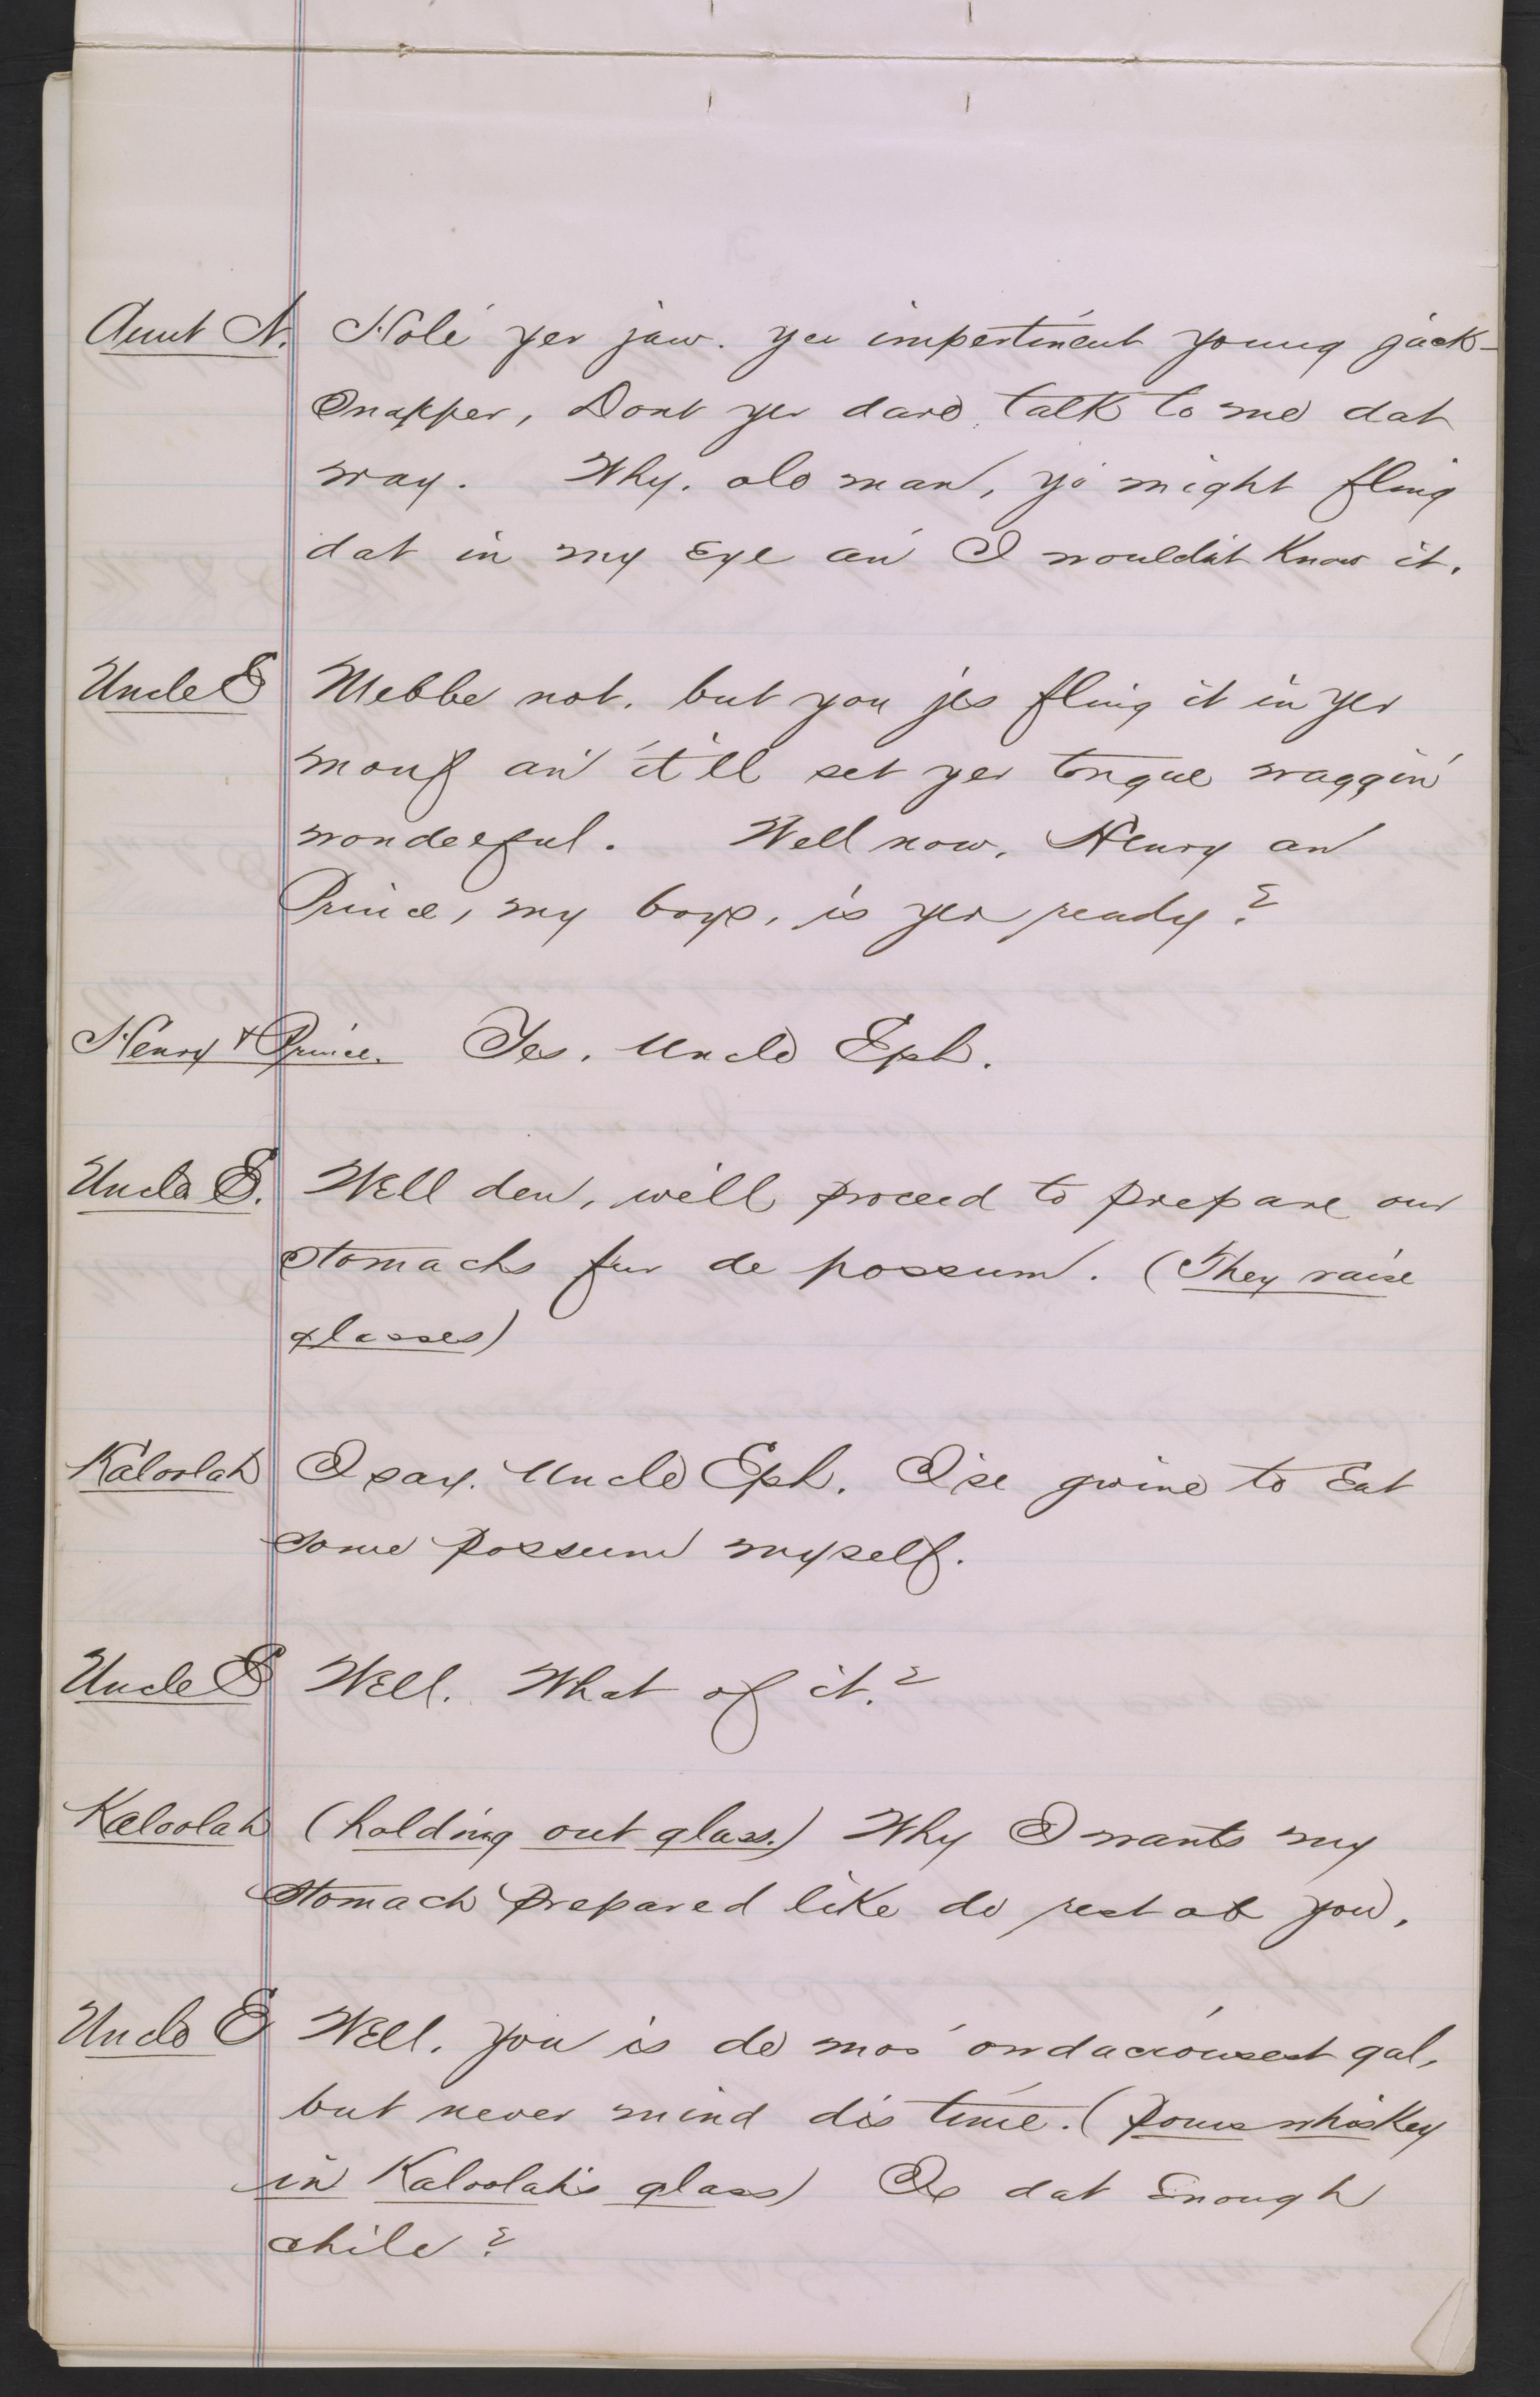 Aunt N. Hole' yer jaw. yer impertinent young jack-
snapper, Dont yer dare talk to me dat
way. Why, ole man, yo' might fling
dat in my Eye an' I wouldn't Know it.
Uncle E Mebbe not, but you jes fling it in yer
mouf an' it'll set yer tongue waggin'
wonderful. Well now, Henry an
Prince, my boys, is yer ready?
Henry + Prince. Yes, Uncle Eph.
Uncle E. Well den, we'll proceed to prepare our
stomachs fur de possum. (They raise
glasses)
Kaloolah I say, Uncle Eph. I'se gwine to Eat
some possum myself.
Uncle E Well. What of it?
Kaloolah (holding out glass.) Why I wants my
stomach prepared like de rest ob you.
Uncle E Well, you is de mos' owdaciousest gal,
but never mind dis time. (Pours whiskey
in Kaloolah's glass) Is dat Enough
chile?